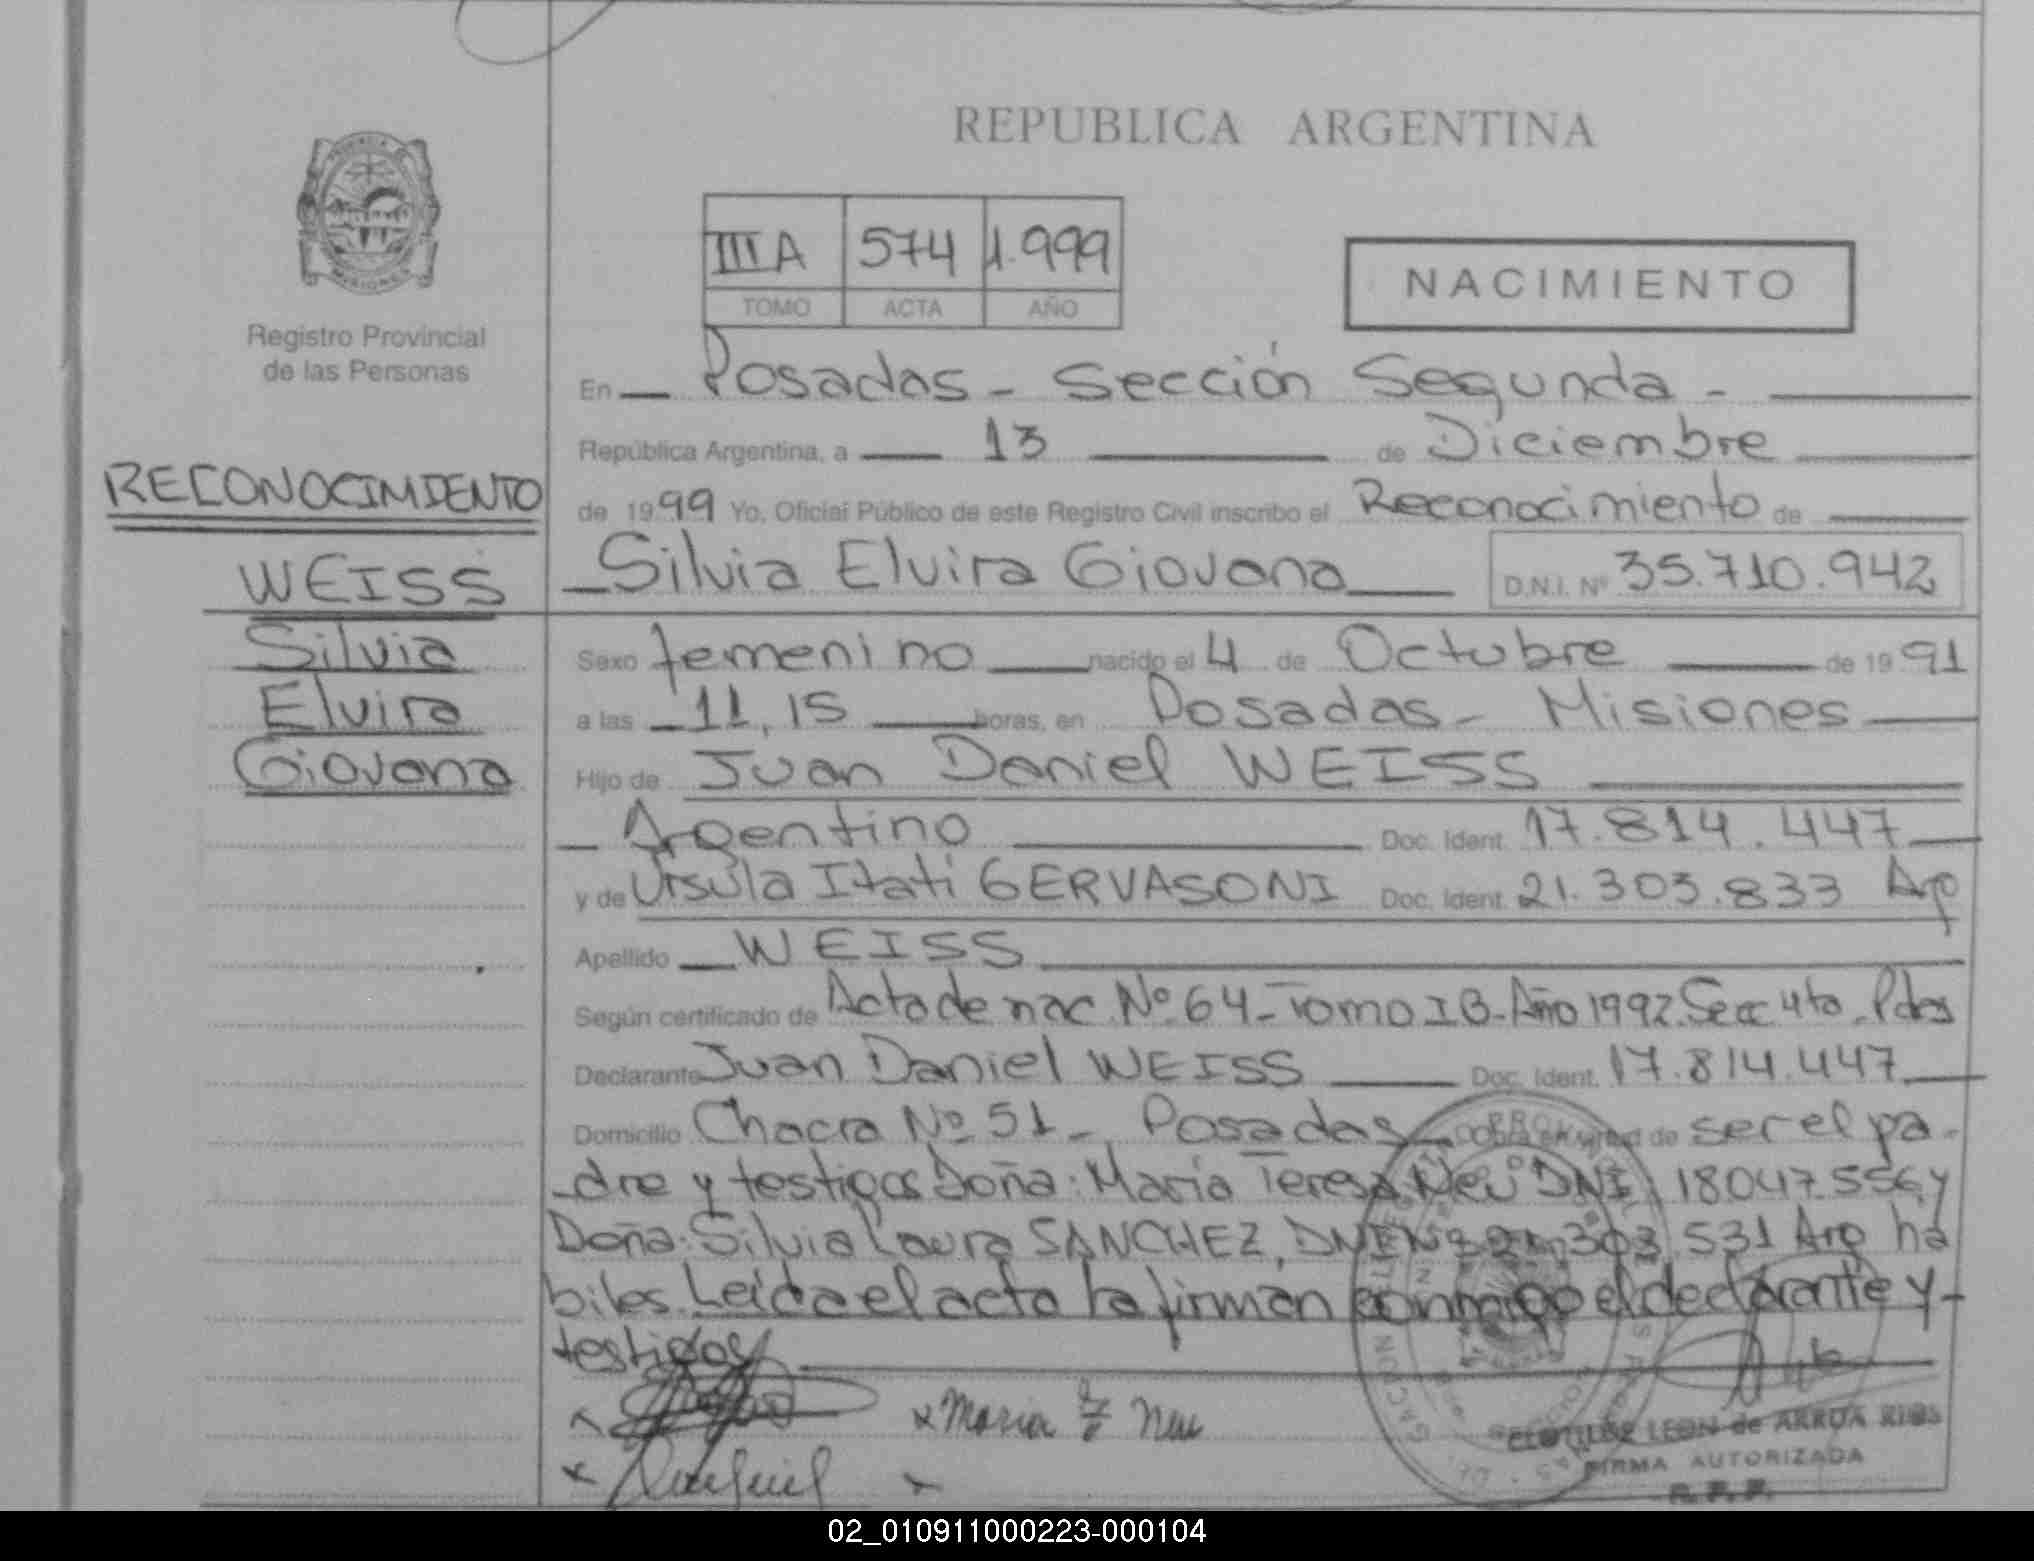 REPUBLICA ARGENTINA
III A 574 1.999
TOMO ACTA AÑO
NACIMIENTO
Registro Provincial
de las Personas
RECONOCIMIENTO
WEISS
Silvia
Elvira
Giovana
En Posadas - Sección Segunda -
República Argentina, a 13 de Diciembre
de 1999 Yo, Oficial Público de este Registro Civil inscribo el Reconocimiento de
Silvia Elvira Giovana D.N.I. Nº 35.710.942
Sexo femenino nacido el 4 de Octubre de 19 91
a las 11,15 horas, en Posadas - Misiones
Hijo de Juan Daniel WEISS
Argentino Doc. Ident. 17.814.447
y de Ursula Itati GERVASONI Doc. Ident. 21.303.833 Arg
Apellido WEISS
Según certificado de Acta de nac. Nº 64 - Tomo I B - Año 1992. Secc 4ta - Pdas
Declarante Juan Daniel WEISS Doc. Ident. 17.814.447
Domicilio Chacra Nº 51 - Posadas - Obra en virtud de ser el pa-
dre y testigos Doña: Maria Teresa Neu DNI 18047.556, y
Doña: Silvia Laura SANCHEZ, 303.531 Arg ha
biles. Leida el acta la firman conmigo el declarante y
testigos
x Maria T Neu
CLOTILDE LEON de ARRUA RIOS
FIRMA AUTORIZADA
R. P. P.
02_010911000223-000104